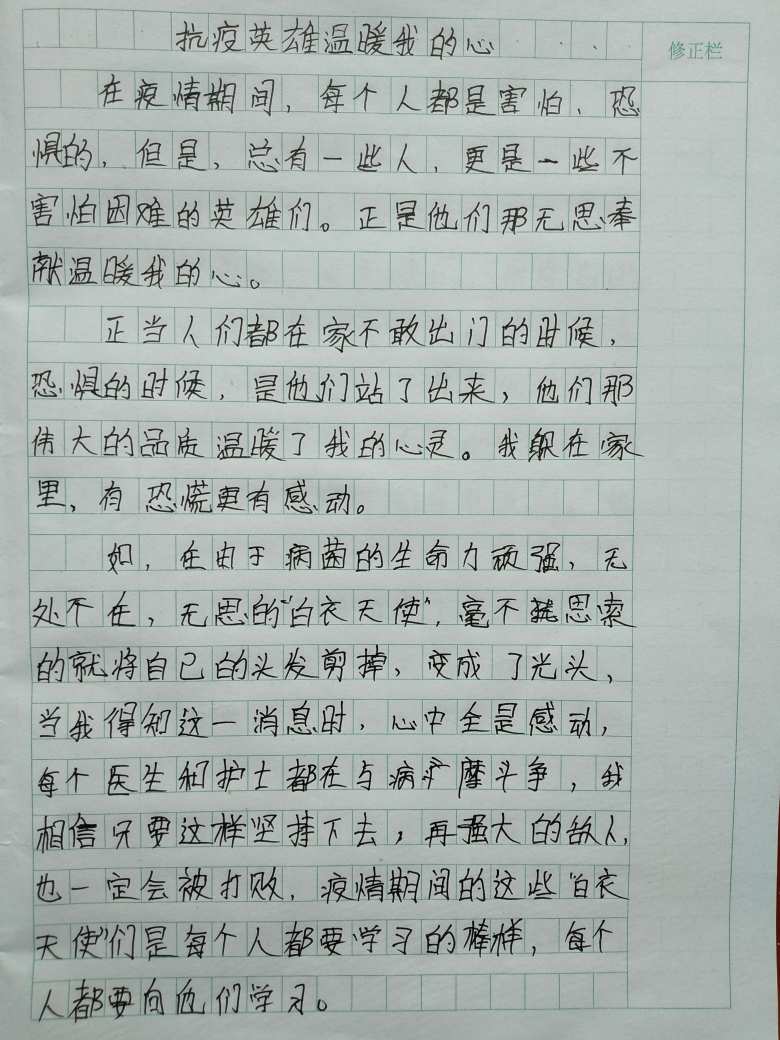 抗疫英雄温暖我的心
修正栏
在疫情期间，每个人都是害怕、恐
惧的，但是，总有一些人，更是一些不
害怕困难的英雄们。正是他们那无思奉
献温暖我的心。
正当人们都在家不敢出门的时候，
恐惧的时候，是他们站了出来，他们那
伟大的品质温暖了我的心灵。我躲在家
里，有恐慌更有感动。
如，在由于病菌的生命力顽强，无
处不在，无思的“白衣天使”，毫不思索
的就将自己的头发剪掉，变成了光头，
当我得知这一消息时，心中全是感动，
每个医生和护士都在与病摩斗争，我
相信只要这样坚持下去，再强大的敌人，
也一定会被打败，疫情期间的这些“白衣
天使”们是每个人都要学习的榜样，每个
人都要向他们学习。